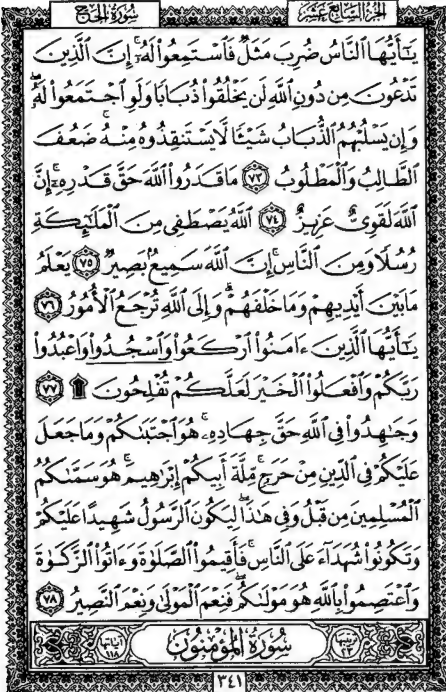 سُورَةُ الحَجِّ الجُزْءُ السَّابِعَ عَشَرَ
يَٰٓأَيُّهَا ٱلنَّاسُ ضُرِبَ مَثَلٌ فَٱسْتَمِعُوا۟ لَهُۥٓ ۚ إِنَّ ٱلَّذِينَ
تَدْعُونَ مِن دُونِ ٱللَّهِ لَن يَخْلُقُوا۟ ذُبَابًا وَلَوِ ٱجْتَمَعُوا۟ لَهُۥ ۖ
وَإِن يَسْلُبْهُمُ ٱلذُّبَابُ شَيْـًٔا لَّا يَسْتَنقِذُوهُ مِنْهُ ۚ ضَعُفَ
ٱلطَّالِبُ وَٱلْمَطْلُوبُ ٧٣ مَا قَدَرُوا۟ ٱللَّهَ حَقَّ قَدْرِهِۦٓ ۗ إِنَّ
ٱللَّهَ لَقَوِىٌّ عَزِيزٌ ٧٤ ٱللَّهُ يَصْطَفِى مِنَ ٱلْمَلَٰٓئِكَةِ
رُسُلًا وَمِنَ ٱلنَّاسِ ۚ إِنَّ ٱللَّهَ سَمِيعٌۢ بَصِيرٌ ٧٥ يَعْلَمُ
مَا بَيْنَ أَيْدِيهِمْ وَمَا خَلْفَهُمْ ۗ وَإِلَى ٱللَّهِ تُرْجَعُ ٱلْأُمُورُ ٧٦
يَٰٓأَيُّهَا ٱلَّذِينَ ءَامَنُوا۟ ٱرْكَعُوا۟ وَٱسْجُدُوا۟ وَٱعْبُدُوا۟
رَبَّكُمْ وَٱفْعَلُوا۟ ٱلْخَيْرَ لَعَلَّكُمْ تُفْلِحُونَ ۩ ٧٧
وَجَٰهِدُوا۟ فِى ٱللَّهِ حَقَّ جِهَادِهِۦ ۚ هُوَ ٱجْتَبَىٰكُمْ وَمَا جَعَلَ
عَلَيْكُمْ فِى ٱلدِّينِ مِنْ حَرَجٍ ۚ مِّلَّةَ أَبِيكُمْ إِبْرَٰهِيمَ ۚ هُوَ سَمَّىٰكُمُ
ٱلْمُسْلِمِينَ مِن قَبْلُ وَفِى هَٰذَا لِيَكُونَ ٱلرَّسُولُ شَهِيدًا عَلَيْكُمْ
وَتَكُونُوا۟ شُهَدَآءَ عَلَى ٱلنَّاسِ ۚ فَأَقِيمُوا۟ ٱلصَّلَوٰةَ وَءَاتُوا۟ ٱلزَّكَوٰةَ
وَٱعْتَصِمُوا۟ بِٱللَّهِ هُوَ مَوْلَىٰكُمْ ۖ فَنِعْمَ ٱلْمَوْلَىٰ وَنِعْمَ ٱلنَّصِيرُ ٧٨
ترتيبها ٢٣ سُورَةُ المُؤْمِنُونَ آياتها ١١٨
٣٤١